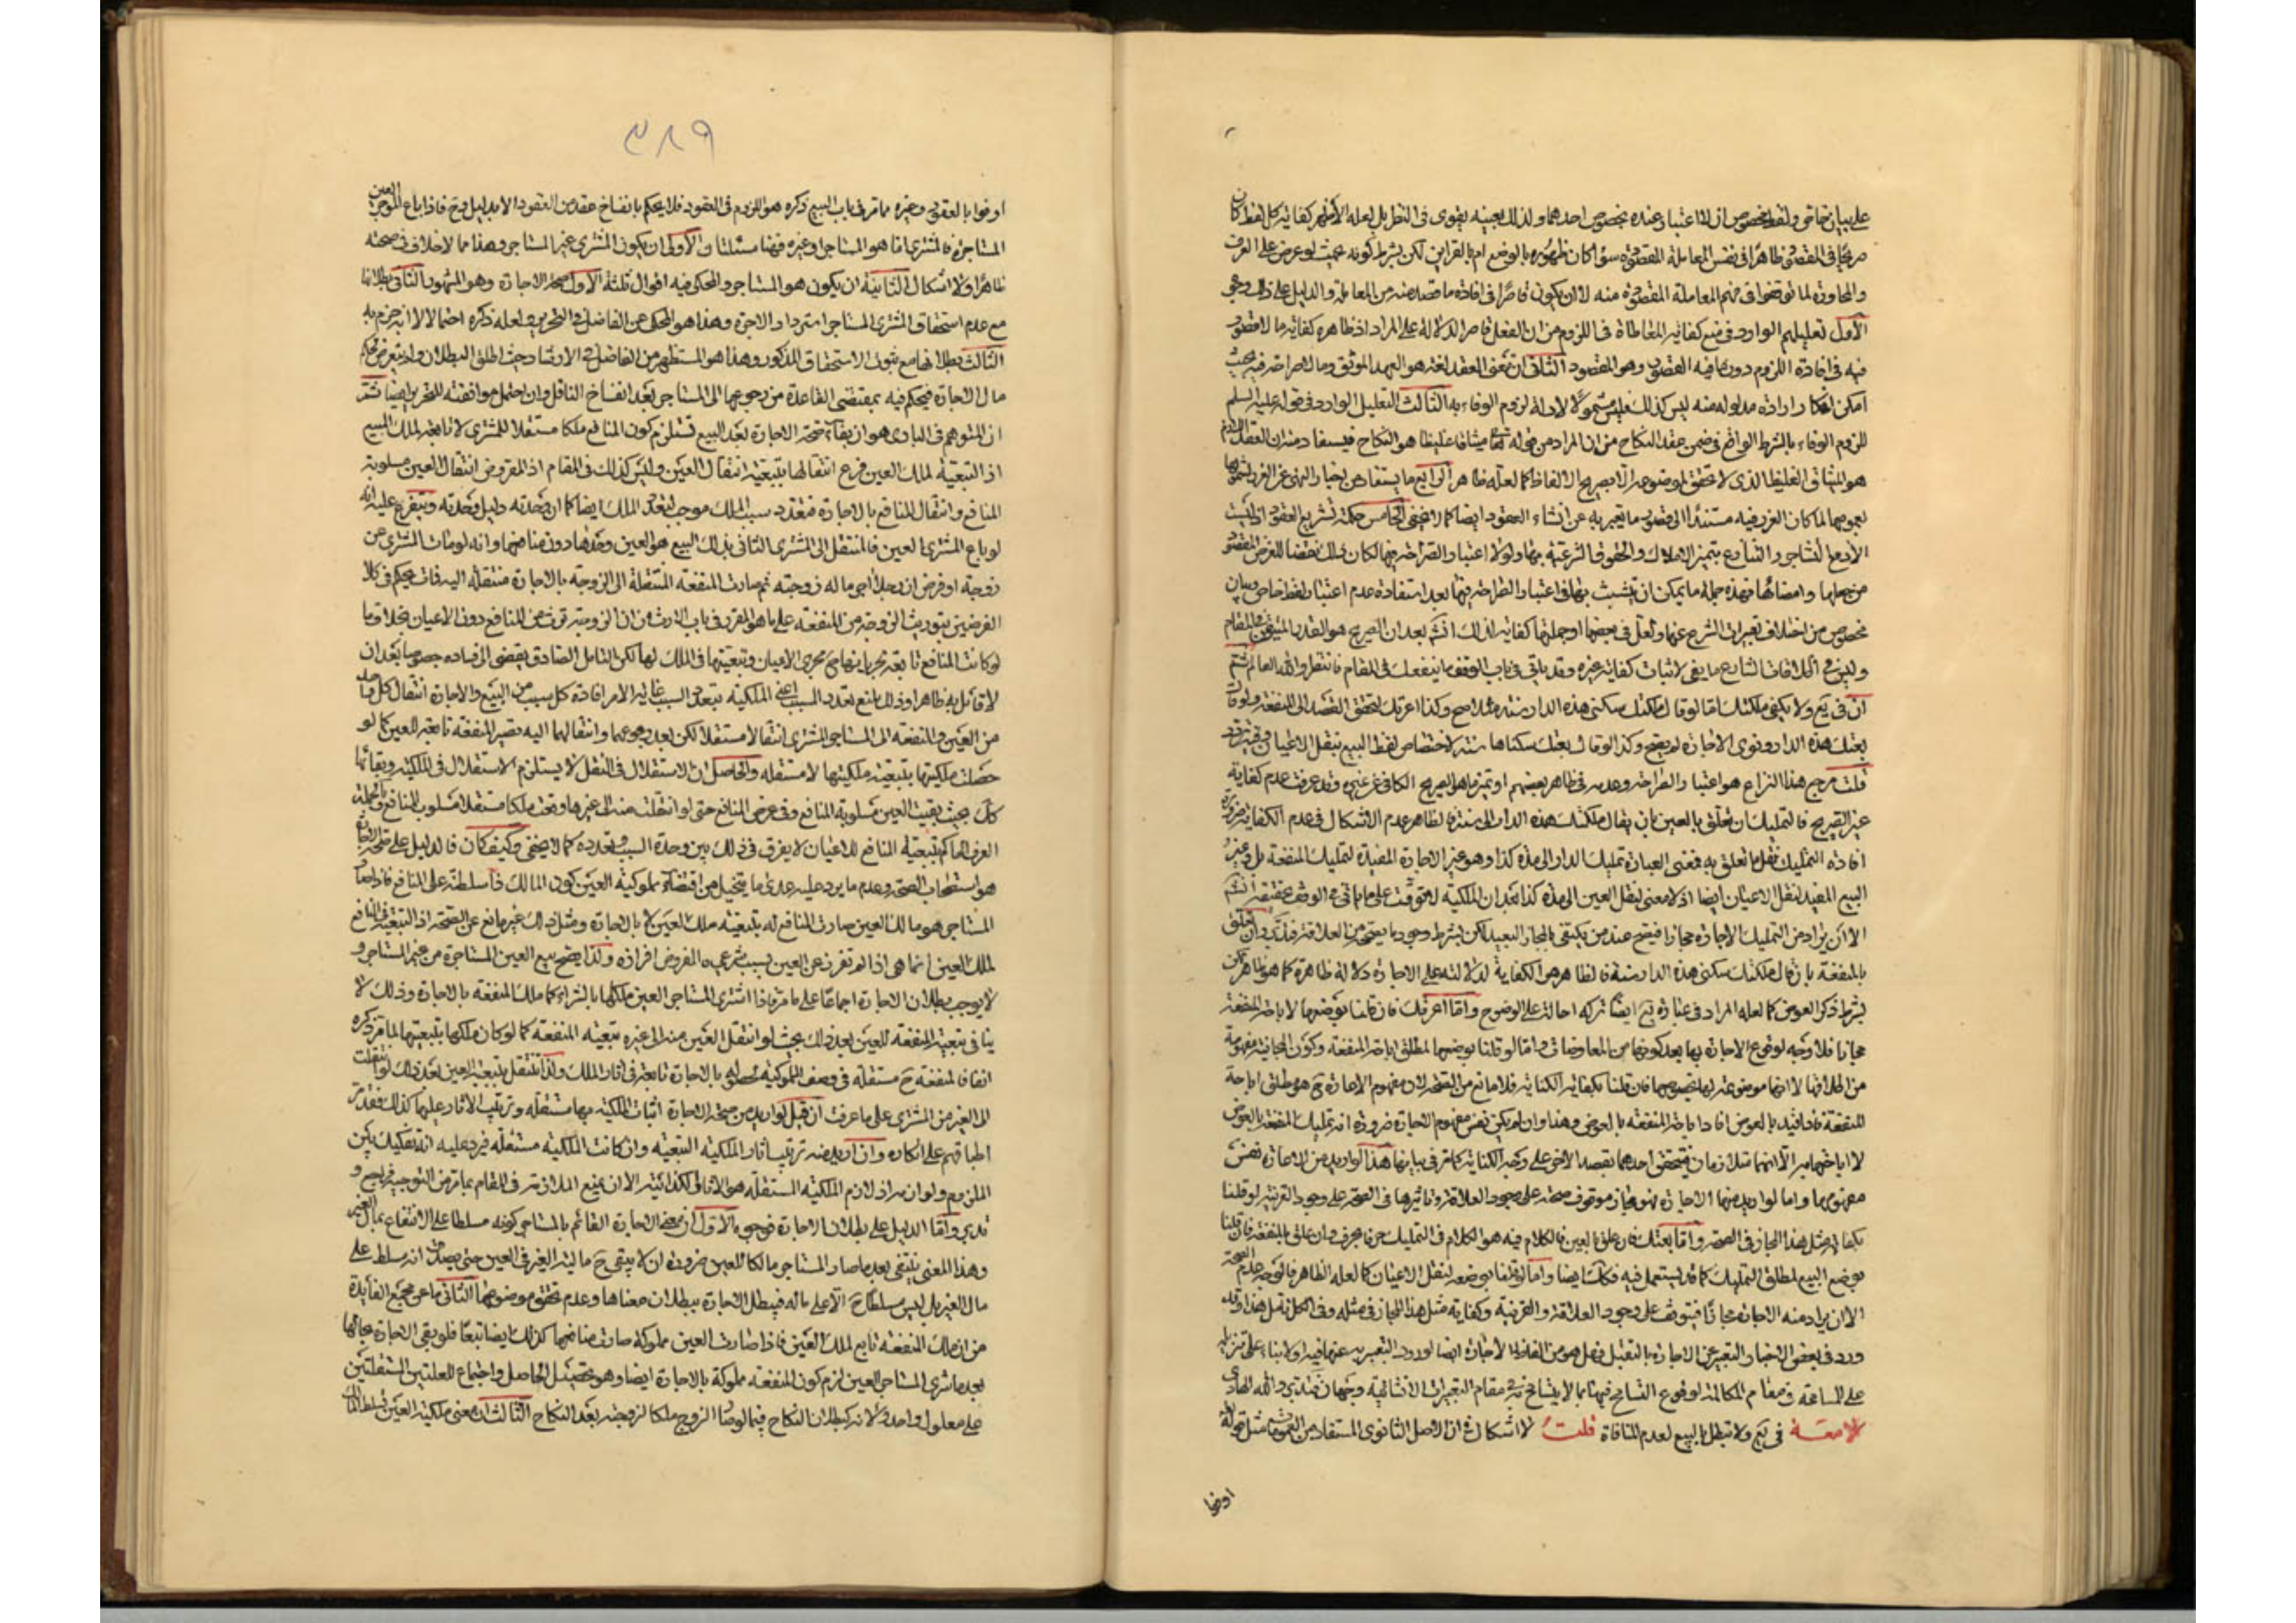 على بيان خاص ولفظ مخصوص اذ لا اعتبار عنده بخصوص احدهما ولذلك بعينه يقوى فى النظر بل لعله الأظهر كفاية كل لفظ كان
صريحًا فى المقصود ظاهرًا فى نفس المعاملة المقصودة سواء كان ظهوره بالوضع ام بالقراين لكن بشرط كونه بحيث لو عرض على العرف
والمحاورة لما توقفوا فى فهم المعاملة المقصودة منه لا ان يكون قاصرًا فى افادة ما قصد منه من المعاملة والدليل على ذلك وجوه
الأول تعليلهم الوارد فى منع كفاية المعاطاة فى اللزوم من ان الفعل قاصر الدلالة على المراد اذ ظاهره كفاية ما لا قصور
فيه فى افادة اللزوم دون ما فيه القصور وهو المقصود الثانى ان معنى العقد لغة هو العهد الموثق وما لا صراحة فيه بحيث
امكن انكار ارادة مدلوله منه ليس كذلك فليس مشمولًا لادلة لزوم الوفاء به الثالث التعليل الوارد فى قوله عليه السلم
للزوم الوفاء بالشرط الواقع فى ضمن عقد النكاح من ان المراد من قوله تعالى ميثاقا غليظا هو النكاح فيستفاد منه ان العقد
هو الميثاق الغليظ الذى لا يتحقق الموضوعه الا بصريح الالفاظ كما لعله ظاهر الرابع ما يستفاد من اخبار النهى عن الغرر
بعمومها لما كان الغرر فيه مستندًا الى قصور ما يعبر به عن انشاء العقود ايضا كما لا يخفى الخامس حكمة تشريع العقود اذ ليست
الا دفع التشاجر والتنازع بتميز الاملاك والحقوق الشرعية بها ولولا اعتبار الصراحة فيها لكان ذلك نقضا للغرض المقصود
من جعلها وامضائها فهذه جملة ما يمكن ان يتشبث بها فى اعتبار الصراحة فيها بعد استفادة عدم اعتبار لفظ خاص وبيان
مخصوص من اختلاف تعبيرات الشرع عنها ولعل فى بعضها او جملتها كفاية لذلك افهم بعد ان الصريح هو القدر المتيقن فى المقام
وليس فى اطلاقات الشارع ما يفى لاثبات كفاية غيره وقد ياتى فى باب الوقف ما ينفعك فى المقام فانتظر والله العالم ثم
ان فى يع ولا يكفى ملكتك اما لو قال ملكتك سكنى هذه الدار سنة مثلا صح وكذا اعرتك لتحقق القصد الى المنفعة ولو قال
بعتك هذه الدار ونوى الاجارة لم يصح وكذا لو قال بعتك سكناها سنة لاختصاص لفظ البيع بنقل الاعيان وفيه تردد
قلت مرجع هذا النزاع هو اعتبار الصراحة وعدمه فى ظاهر بعضهم او تميز ما هو الصريح الكافى عن غيره وقد عرفت عدم كفاية
غير الصريح فالتمليك ان تعلق بالعين بان يقال ملكتك هذه الدار الى سنة فالظاهر عدم الاشكال فى عدم الكفاية ضرورة
افادة التمليك نقل ما تعلق به فمعنى العبارة تمليك الدار الى مدة كذا وهو غير الاجارة المفيدة لتمليك المنفعة بل وغير
البيع المفيد لنقل الاعيان ايضا اذ لا معنى لنقل العين الى مدة كذا بعد ان الملكية لا تتوقت على ما ياتى فى الوقف تحقيقه
الا ان يراد من التمليك الاجارة مجازا فيصح عند من يكتفى بالمجاز البعيد لكن بشرط وجود ما يصححه من العلاقة فتدبر وان تعلق
بالمنفعة بان قال ملكتك سكنى هذه الدار سنة فالظاهر هو الكفاية لدلالته على الاجارة دلالة ظاهرة كما هو ظاهر
بشرط ذكر العوض كما لعله المراد فى عبارة يع ايضًا تركه احالة على الوضوح واما اعرتك فان قلنا بوضعها لاباحة المنفعة
مجانا فلا وجه لوقوع الاجارة بها بعد كونها من المعاوضات اما لو قلنا بوضعها لمطلق اباحة المنفعة وكون المجانية مفهومة
من اطلاقها لا انها موضوعة لها بخصوصها فان قلنا بكفاية الكناية فلا مانع من الصحة اذ مفهوم الاعارة ح هو مطلق اباحة
المنفعة فاذا قيد بالعوض افاد اباحة المنفعة بالعوض وهذا وان لم يكن نفس مفهوم الاجارة ضرورة انه تمليك المنفعة بالعوض
لا اباحتها به الا انهما متلازمان فيتحقق احدهما بقصد الاخر على وجه الكناية كما مر فى بابها هذا لو اريد من الاعارة نفس
مفهومها واما لو اريد منها الاجارة فهو مجاز موقوف صحته على وجود العلاقة وتاثيرها فى الصحة على وجود القرينة لو قلنا
بكفاية مثل هذا المجاز فى الصحة واما بعتك فان علق بالعين فالكلام فيه هو الكلام فى التمليك حرفا بحرف وان علق بالمنفعة فان قلنا
بوضع البيع لمطلق التمليك كما قد يستعمل فيه فكذلك ايضا واما لو قلنا بوضعه لنقل الاعيان كما لعله الظاهر فالوجه عدم الصحة
الا ان يراد منه الاجارة مجازًا فيتوقف على وجود العلاقة والقرينة وكفاية مثل هذا المجاز فى مثله وفى الكل تامل هذا وقد
ورد فى بعض الاخبار التعبير عن الاجارة بالتقبل فهل هو من الفاظ الاجارة ايضا لورود التعبير به عنها فيه اولا بناء على تنزيله
على المسامحة فى مقام المكالمة لوقوع التسامح فيها بما لا يتسامح به فى مقام التعبيرات الانشائية وجهان فتدبر والله الهادى
لامعة فى يع ولا تبطل بالبيع لعدم المنافاة قلت لا اشكال فى ان الاصل الثانوى المستفاد من العمومات مثل قوله
اوفوا
٣٨٩
اوفوا بالعقود وغيره مما مر فى باب البيع ذكره هو اللزوم فى العقود فلا يحكم بانفساخ عقد من العقود الا بدليل وح فاذا باع الموجر العين
المستاجرة فالمشترى اما هو المستاجر او غيره فهنا مسئلتان الأولى ان يكون المشترى غير المستاجر وهذا مما لا خلاف فى صحته
ظاهرًا ولا اشكال الثانية ان يكون هو المستاجر والمحكى فيه اقوال ثلثة الأول صحة الاجارة وهو المشهور الثانى بطلانها
مع عدم استحقاق المشترى المستاجر استرداد الاجرة وهذا هو المحكى عن الفاضل فى التحرير ولعله ذكره احتمالا لا انه جزم به
الثالث بطلانها مع ثبوت الاستحقاق المذكور وهذا هو المستظهر من الفاضل فى الارشاد حيث اطلق البطلان ولم يتعرض لحكم
مال الاجارة فيحكم فيه بمقتضى القاعدة من رجوعها الى المستاجر بعد انفساخ الناقل وان احتمل موافقته للتحرير ايضا ثم
ان المتوهم فى البادى هو ان بقاء صحة الاجارة بعد البيع يستلزم كون المنافع ملكا مستقلا للمشترى لا تابعة لملك المبيع
اذ التبعية لملك العين فرع انتقالها بتبعية انتقال العين وليس كذلك فى المقام اذ المفروض انتقال العين مسلوبة
المنافع وانتقال المنافع بالاجارة فتعدد سبب الملك موجب لتعدد الملك ايضا كما ان وحدته دليل وحدته ويتفرع عليه انه
لو باع المشترى العين فالمنتقل الى المشترى الثانى بذلك البيع هو العين وحدها دون منافعها وانه لو مات المشترى عن
زوجة او فرض ان رجلا اجر ماله زوجته ثم صارت المنفعة المنتقلة الى الزوجة بالاجارة منتقلة اليه فمات يحكم فى كلا
الفرضين بتوريث الزوجة من المنفعة على ما هو المقرر فى باب الارث من ان الزوجة ترث من المنافع دون الاعيان بخلاف ما
لو كانت المنافع تابعة بجريانها مجرى الاعيان وتبعيتها فى الملك لها لكن التامل الصادق يقضى الى فساده خصوصا بعد ان
لا قائل به ظاهرا وذلك بمنع تعدد المسبب اعنى الملكية بتعدد السبب غاية الامر افادة كل سبب من البيع والاجارة انتقال كل واحد
من العين والمنفعة الى المستاجر المشترى انتقالا مستقلا لكن بعد رجوعهما وانتقالهما اليه تصير المنفعة تابعة للعين كما لو
حصلت ملكيتها بتبعية ملكيتها لا مستقلة والحاصل ان الاستقلال فى النقل لا يستلزم الاستقلال فى الملكية وبقائها
كك بحيث بقيت العين مسلوبة المنافع وفى عرض المنافع حتى لو انتقلت منه الى غيرها وقعت ملكا مستقلا مسلوب المنافع وبالجملة
العرف الحاكم بتبعية المنافع للاعيان لا يفرق فى ذلك بين وحدة السبب وتعدده كما لا يخفى وكيف كان فالدليل على صحة الاجارة
هو استصحاب الصحة وعدم ما يرد عليه عدى ما يتخيل من اقتضاء مملوكية العين كون المالك ذا سلطنة على المنافع فاذا صار
المستاجر هو مالك العين صارت المنافع له بتبعية ملك العين لا بالاجارة ومثل ذلك غير مانع عن الصحة اذ التبعية فى المنافع
لملك العين انما هى اذا لم تفرز عن العين بسبب شرعى والمفروض افرازه ولذا يصح بيع العين المستاجرة من غير المستاجر و
لا يوجب بطلان الاجارة اجماعًا على ما مر فاذا اشترى المستاجر العين ملكها بالشراء كما ملك المنفعة بالاجارة وذلك لا
ينافى تبعية المنفعة للعين بعد ذلك بحيث لو انتقل العين منه الى غيره بتبعية المنفعة كما لو كان ملكها بتبعيتها لما مر ذكره
انفا فالمنفعة ح مستقلة فى وصف المملوكية لحصوله بالاجارة تابعة فى اثار الملك ولذا تنتقل بتبعية العين بعد ذلك لو انتقلت
الى الغير من المشترى على ما عرفت ان قيل لو اريد من صحة الاجارة اثبات الملكية بها مستقلة وترتيب الاثار عليها كذلك فقد مر
اطباقهم على انكاره وان اريد منه ترتيب اثار الملكية التبعية وان كانت الملكية مستقلة فيرد عليه انه تفكيك بين
الملزوم ولوازمه اذ لازم الملكية المستقلة هو الاثار الكذائية الا ان يمنع الملازمة فى المقام بما مر من التوجيه فيصح و
تدبر واما الدليل على بطلان الاجارة فوجوه الأول ان معنى الاجارة القائم بالمستاجر كونه مسلطا على الانتفاع بمال الغير
وهذا المعنى ينتفى بعد ما صار المستاجر مالكا للعين ضرورة ان لا يبقى ح مالية الغير فى العين حتى يصدق انه سلط على
مال الغير بل ليس مسلطًا ح الا على ماله فيبطل الاجارة ببطلان معناها وعدم تحقق موضوعها الثانى ما عن مجمع الفائدة
من ان ملك المنفعة تابع لملك العين فاذا صارت العين مملوكة صارت منافعها كذلك ايضا تبعًا فلو بقى الاجارة بحالها
بعد ما شرى المستاجر العين لزم كون المنفعة مملوكة بالاجارة ايضا وهو تحصيل الحاصل واجتماع للعلتين المستقلتين
على معلول واحد ولانه كبطلان النكاح فيما لو صار الزوج ملكا لزوجته بعد النكاح الثالث ان معنى ملكية العين تسلط المالك